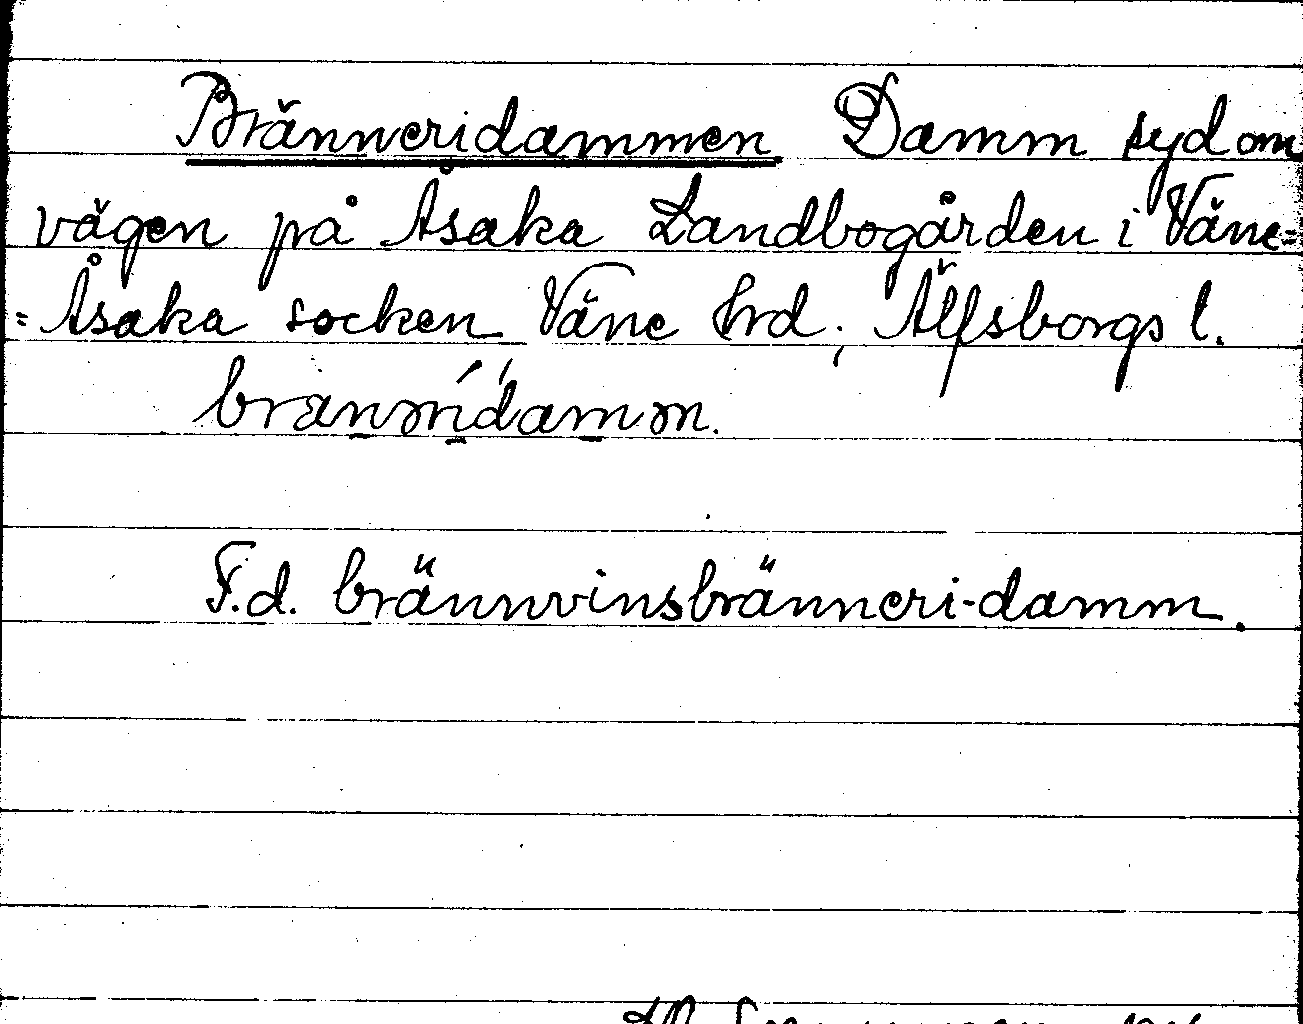 Bränneridammen Damm syd om
vägen på Åsaka Landbogården i Väne=
=Åsaka socken Väne hrd; Älfsborgs l.
F.d. brännvinsbränneri-damm.